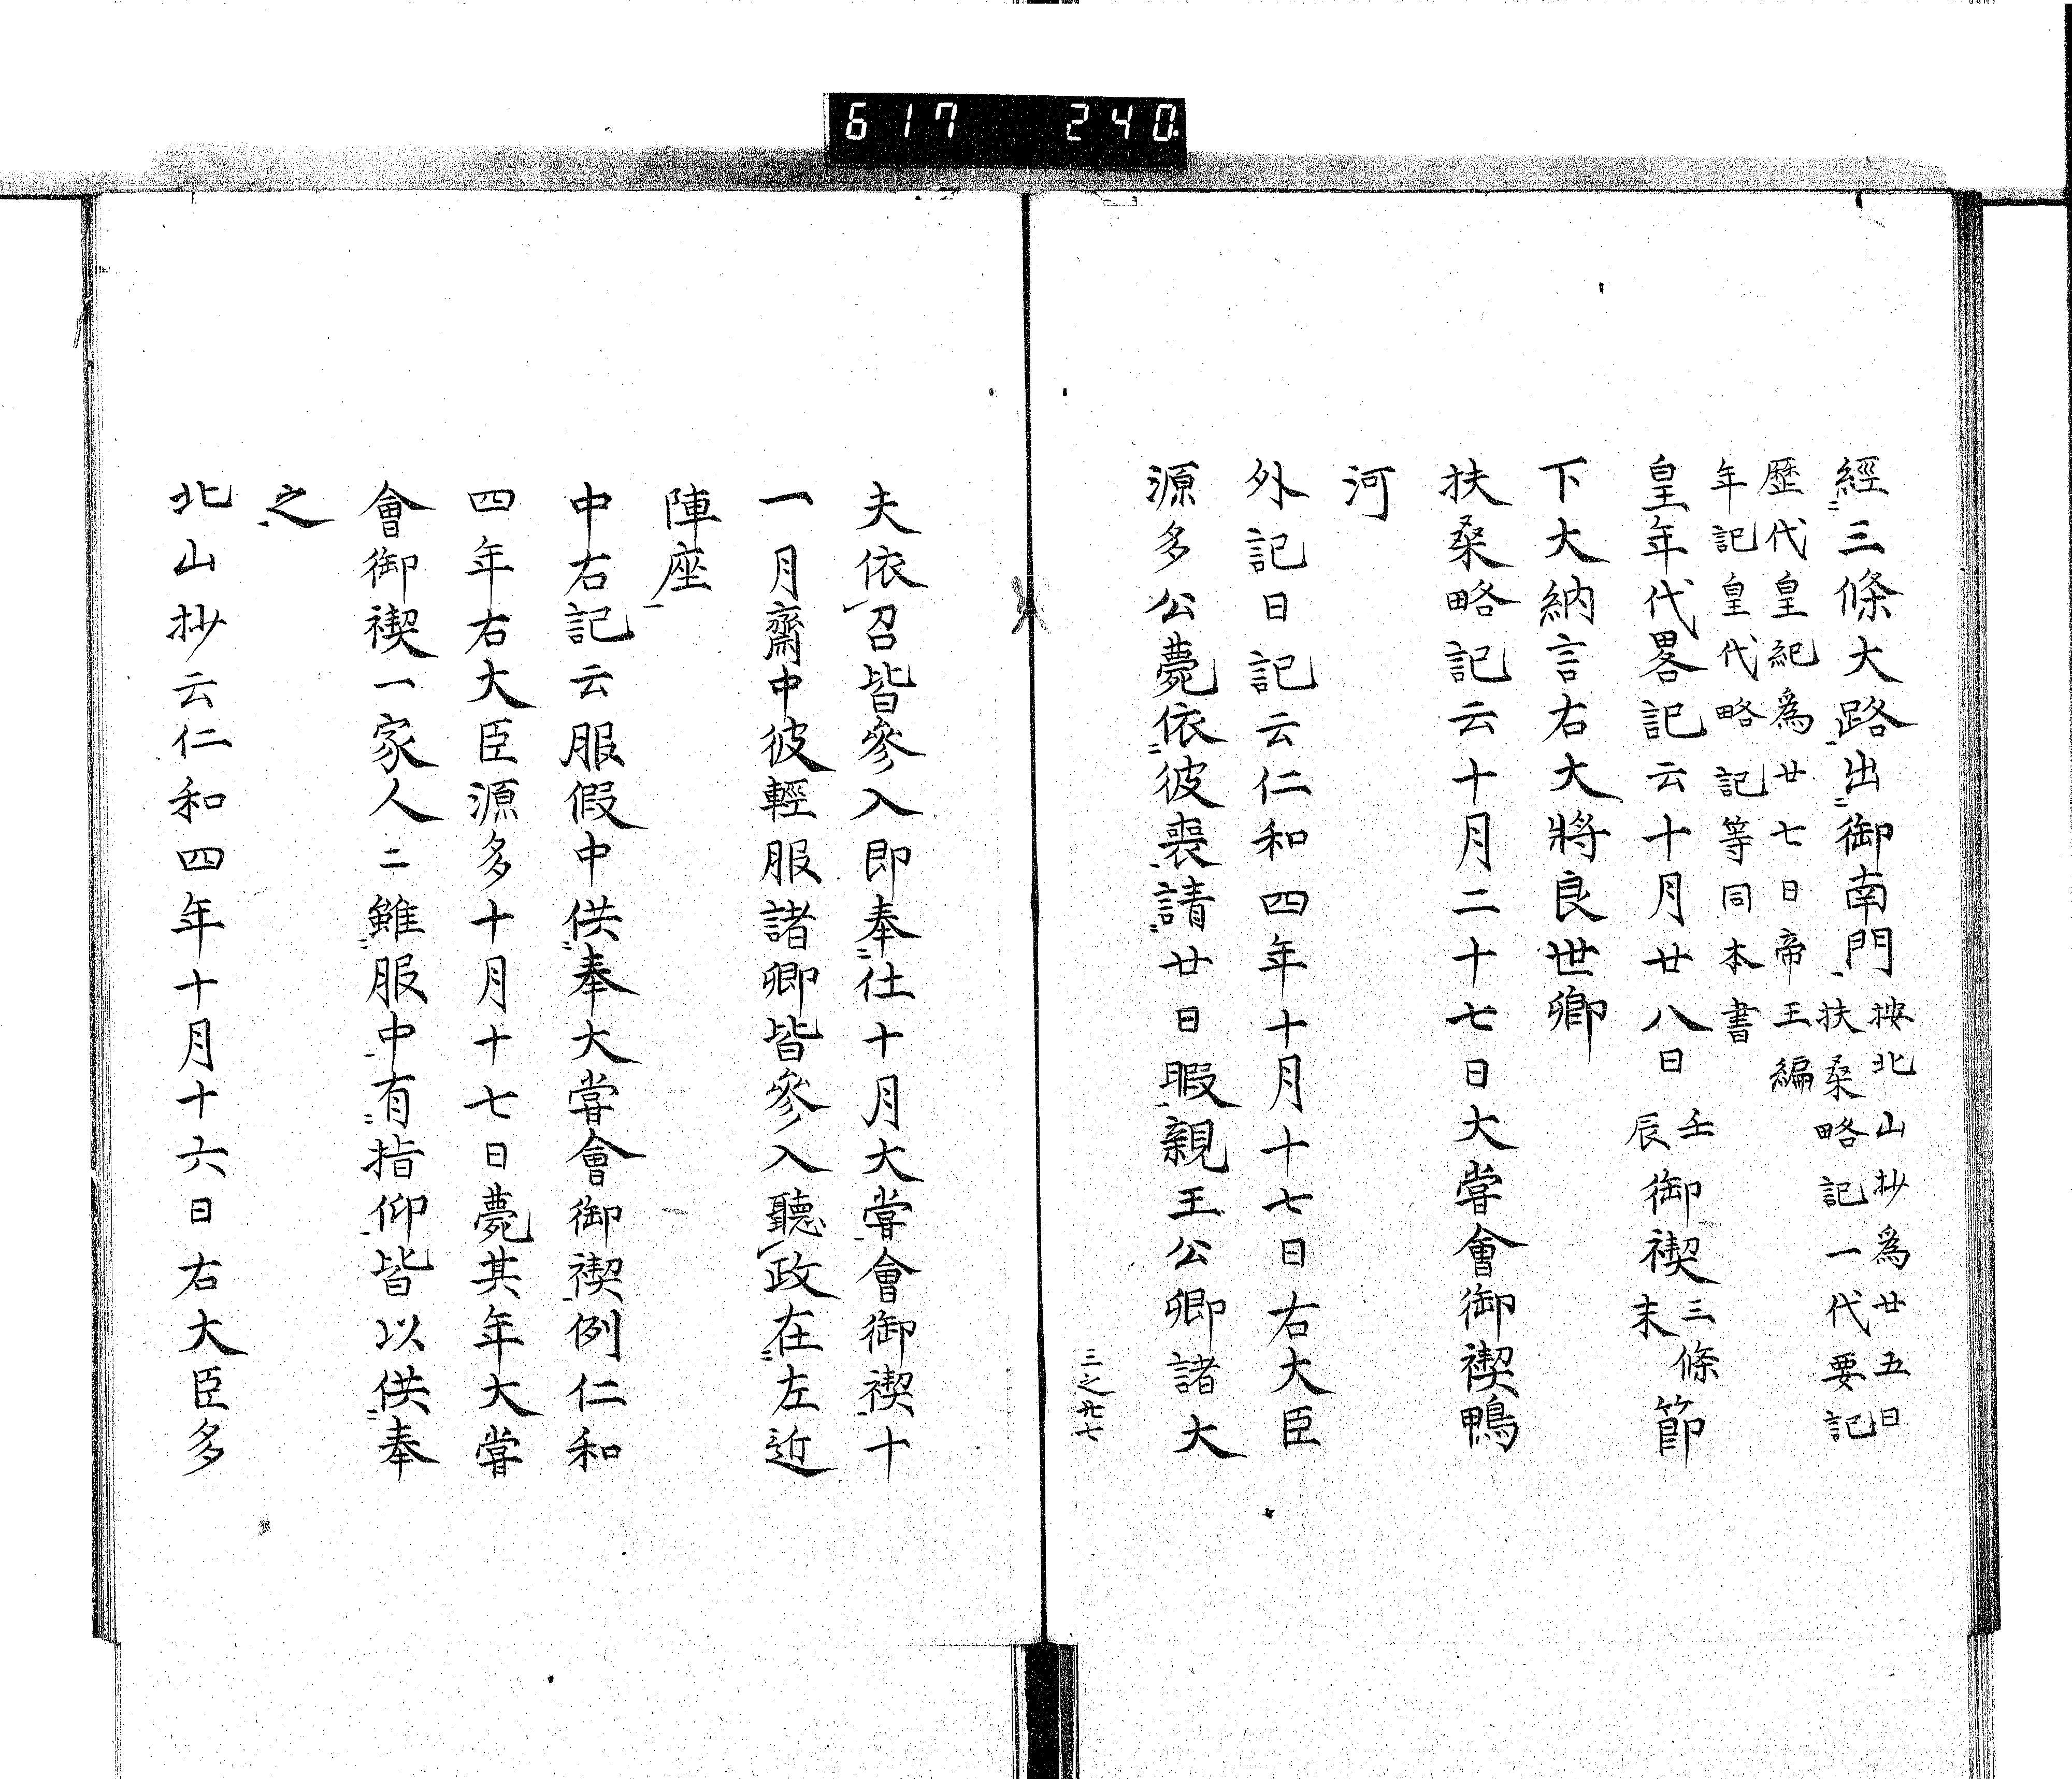 617 240
經三條大路出御南門按北山抄爲廿五日
扶桑略記一代要記
歷代皇紀爲廿七日帝王編
年記皇代略記等同本書
皇年代畧記云十月廿八日壬辰御禊三條末節
下大納言右大將良世卿
扶桑略記云十月二十七日大嘗會御禊鴨
河
外記日記云仁和四年十月十七日右大臣
源多公薨依彼喪請廿日暇親王公卿諸大
三之廿七
夫依召皆參入即奉仕十月大嘗會御禊十
一月齋中彼輕服諸卿皆參入聽政在左近
陣座
中右記云服假中供奉大嘗會御禊例仁和
四年右大臣源多十月十七日薨其年大嘗
會御禊一家人二雖服中有指仰皆以供奉
之
北山抄云仁和四年十月十六日右大臣多